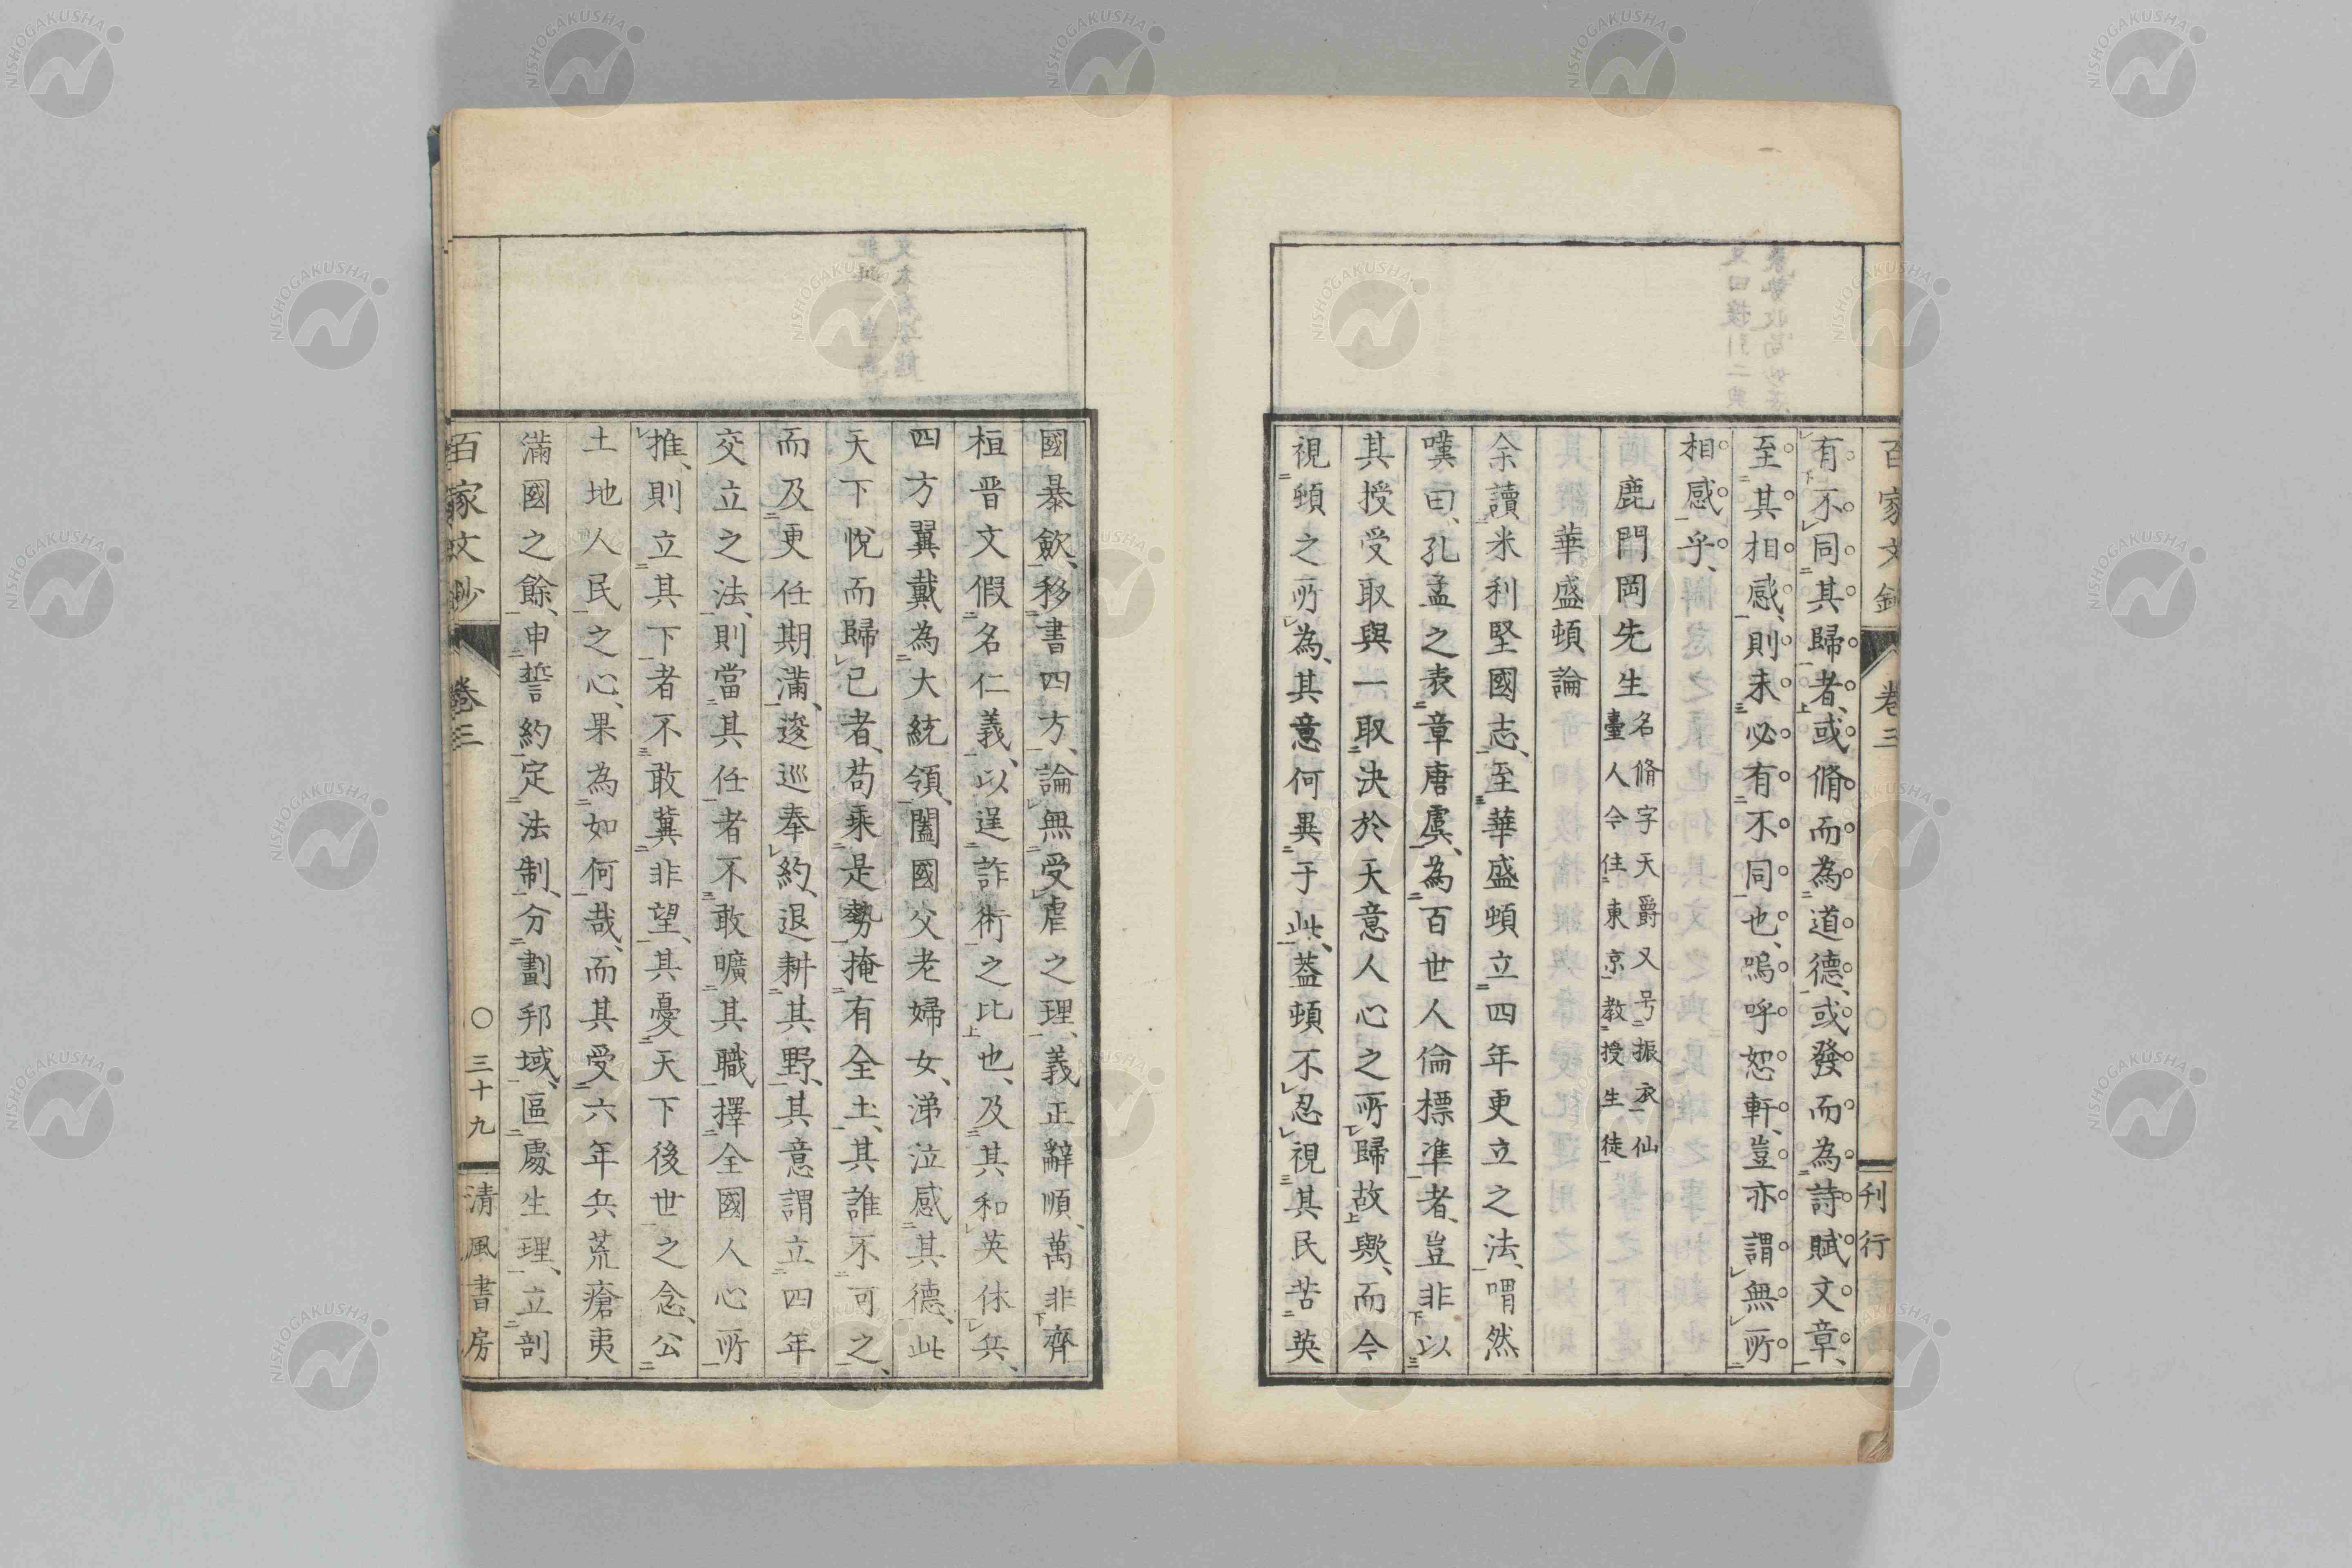 百家文鈔 卷三 三十八 刊行
有不同其歸者、或脩而為道德、或發而為詩賦文章、
至其相感、則未必有不同也、嗚呼恕軒、豈亦謂無所
相感乎、
鹿門岡先生 名脩字天爵又号振衣仙
臺人今住東京教授生徒
華盛頓論
余讀米利堅國志、至華盛頓立四年更立之法、喟然
嘆曰、孔孟之表章唐虞、為百世人倫標準者、豈非以
其授受取與一取決於天意人心之所歸故歟、而今
視頓之所為、其意何異于此、蓋頓不忍視其民苦英
國暴歛、移書四方、論無受虐之理、義正辭順、萬非齊
桓晋文假名仁義、以逞詐術之比也、及其和英休兵、
四方翼戴為大統領、闔國父老婦女、涕泣感其德、此
天下悅而歸已者、苟乘是勢、掩有全土、其誰不可之、
而及更任期滿、逡巡奉約、退耕其野、其意謂立四年
交立之法、則當其任者不敢曠其職、擇全國人心所
推、則立其下者不敢冀非望、其憂天下後世之念、公
土地人民之心、果為如何哉、而其受六年兵荒瘡夷
滿國之餘、申誓約定法制、分劃邦域、區處生理、立剖
百家文鈔 卷三 〇三十九 清風書房
NISHOGAKUSHA